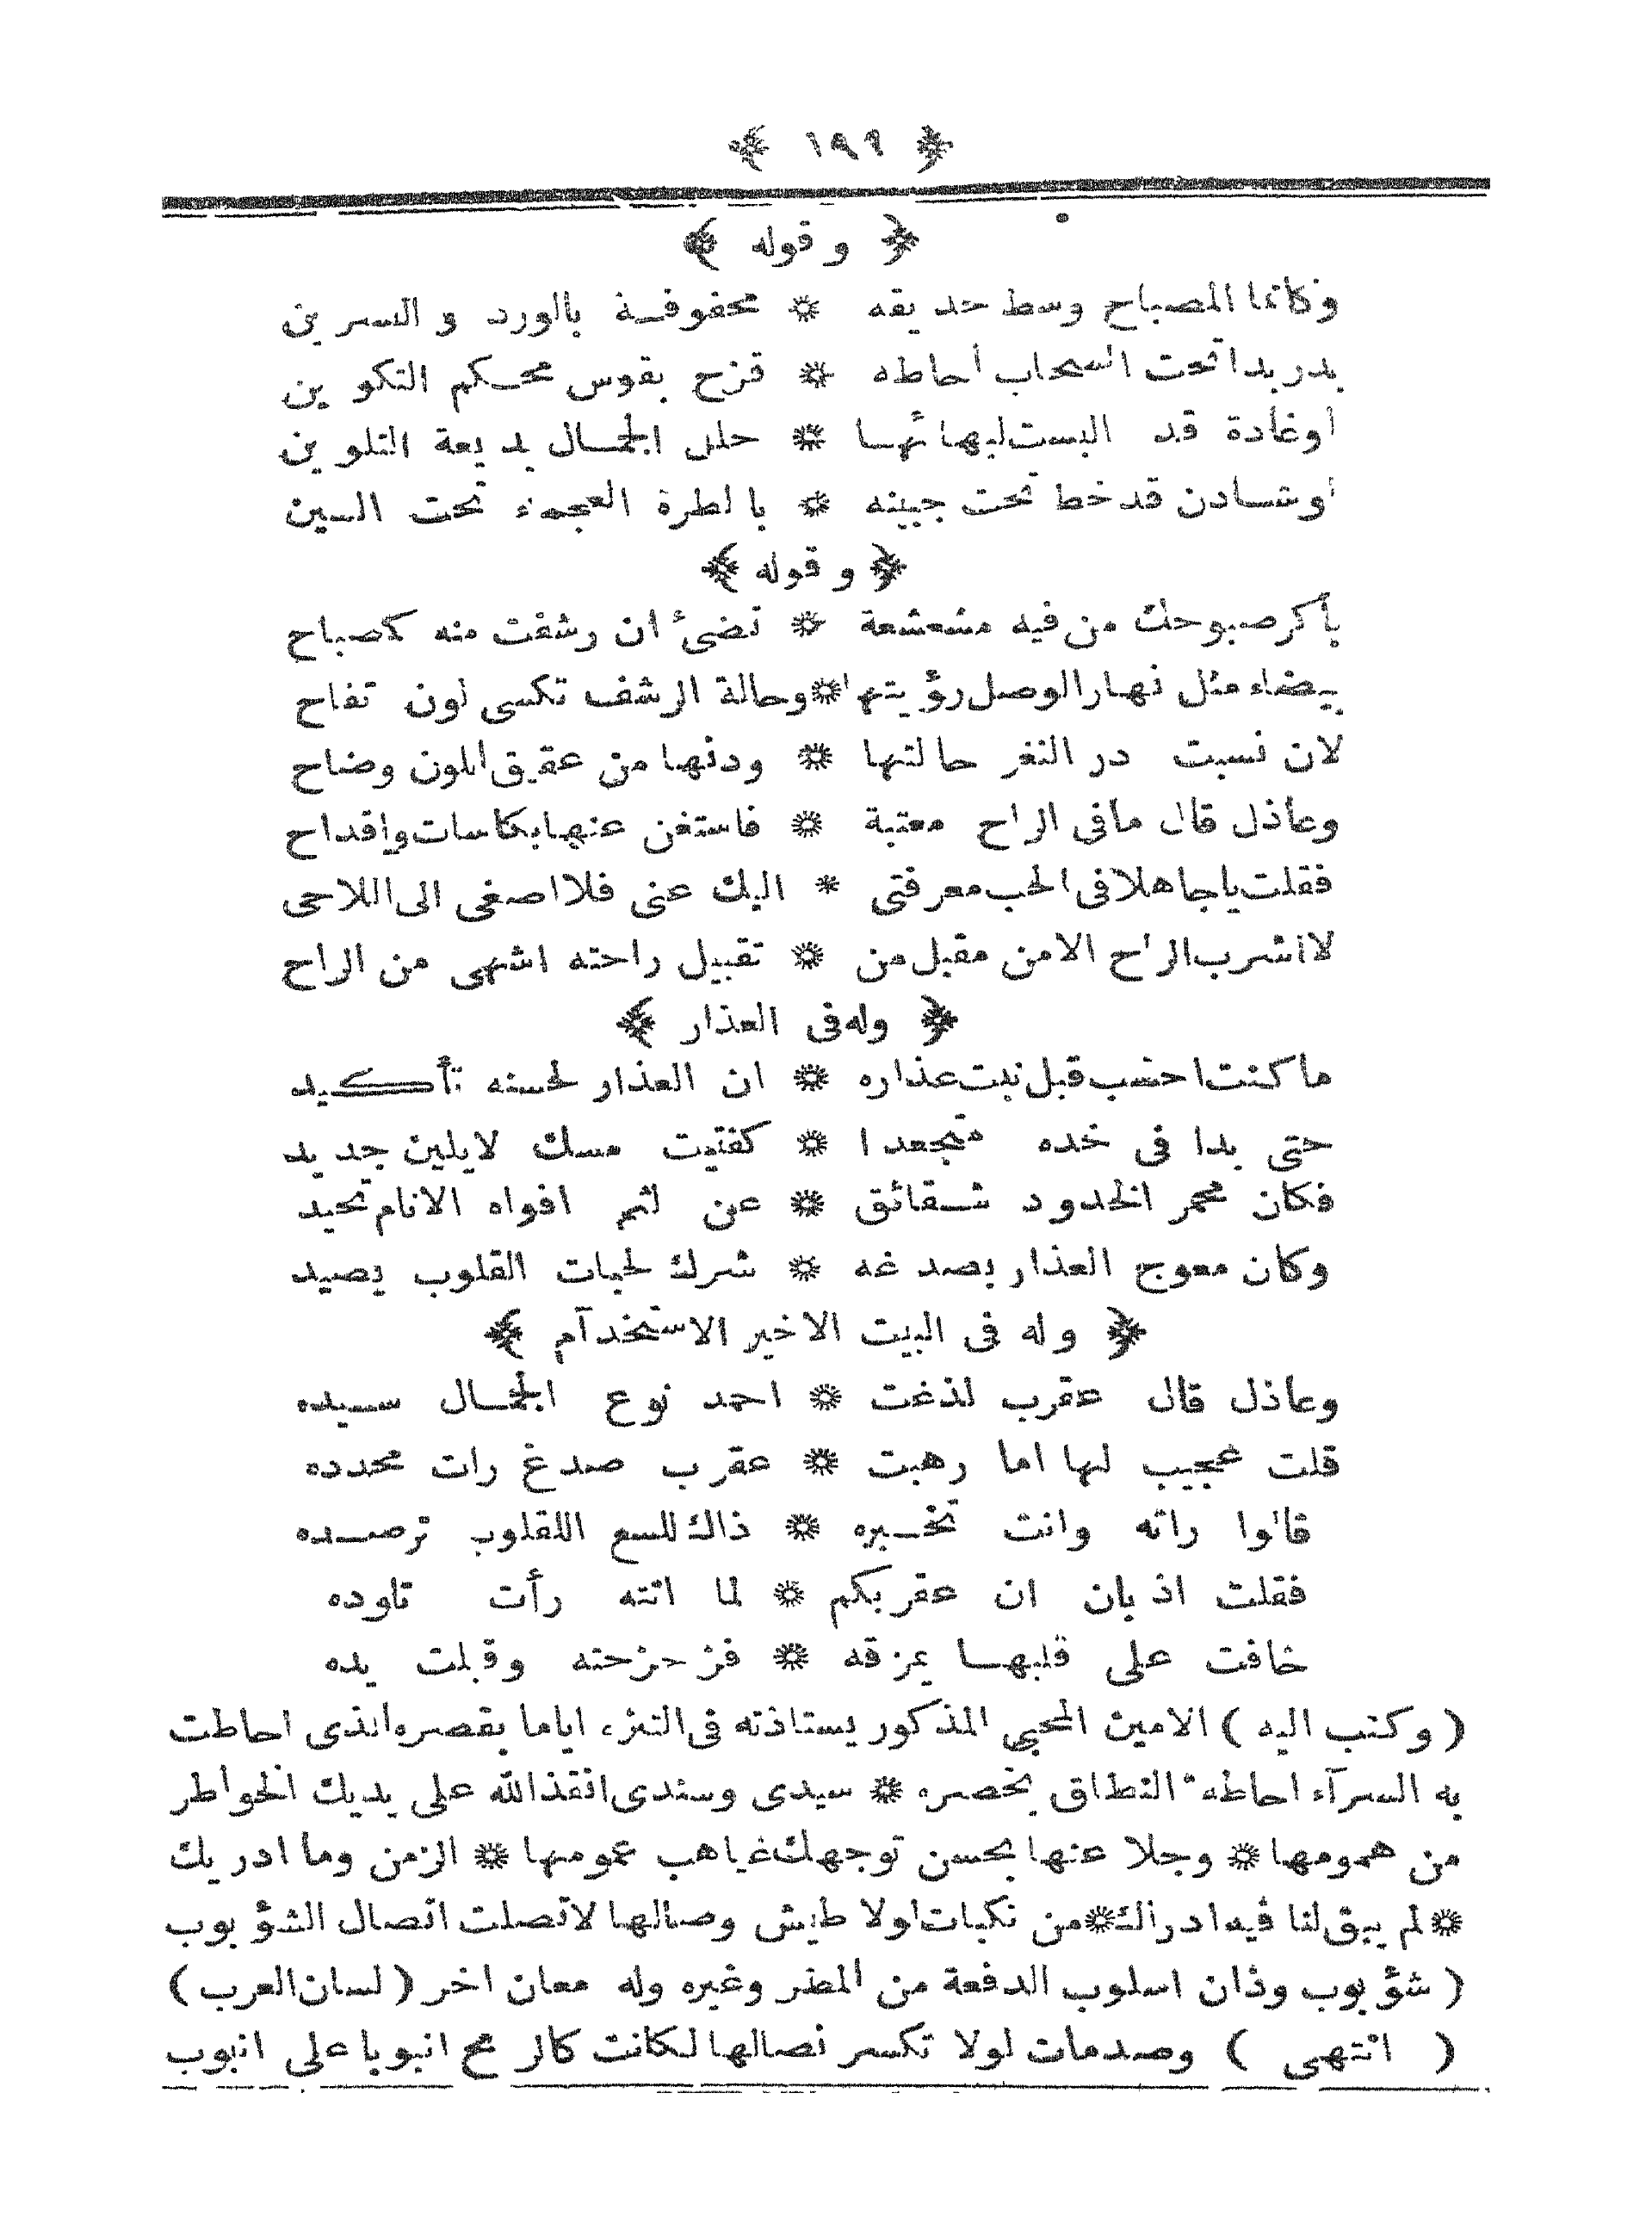 ﴿ ١٩٩ ﴾
﴿ وقوله ﴾
وكانما المصباح وسط حديقه * محفوفة بالورد والنسرين
بدر بدا تحت السحاب احاطه * قزح بقوس محكم التكوين
او غادة قد البست لبهائها * حلل الجمال بديعة التلوين
او شادن قد خط تحت جبينه * بالطرة العجماء تحت السين
﴿ وقوله ﴾
باكر صبوحك من فيه مشعشعة * تضئ ان رشفت منه كاصباح
بيضاء مثل نهار الوصل رؤيتها * وحالة الرشف تكسى لون تفاح
لان نسبت در الثغر حالتها * ودنها من عقيق اللون وضاح
وعاذل قال مافى الراح معتبة * فاستغن عنها بكاسات واقداح
فقلت ياجاهلا فى الحب معرفتى * اليك عنى فلا اصغى الى اللاحى
لا اشرب الراح الا من مقبل من * تقبيل راحته اشهى من الراح
﴿ وله فى العذار ﴾
ما كنت احسب قبل نبت عذاره * ان العذار لحسنه تأكيد
حتى بدا فى خده متجعدا * كفتيت مسك لايلين جديد
فكان محمر الخدود شقائق * عن لثم افواه الانام تحيد
وكان معوج العذار بصدغه * شرك لحبات القلوب يصيد
﴿ وله فى البيت الاخير الاستخدآم ﴾
وعاذل قال عقرب لذغت * احمد نوع الجمال سيده
قلت عجيب لها اما رهبت * عقرب صدغ رات محدده
قالوا راته وانت تخبره * ذاك للسع القلوب ترصده
فقلت اذ بان ان عقربكم * لما اتته رأت تاوده
خافت على قلبها يمزقه * فزحزحته وقبلت يده
( وكتب اليه ) الامين المحبي المذكور يستاذنه فى التنزه اياما بقصره الذى احاطت
به السرآء احاطة النطاق بخصره * سيدى وسندى انقذ الله على يديك الخواطر
من همومها * وجلا عنها بحسن توجهك غياهب غمومها * الزمن وما ادريك
* لم يبق لنا فيه ادراك * من نكبات لولا طيش وصالها لاتصلت اتصال الشؤبوب
( شؤبوب وذان اسلوب الدفعة من المطر وغيره وله معان اخر ( لسان العرب )
( انتهى ) وصدمات لولا تكسر نصالها لكانت كالرمح انبوبا على انبوب